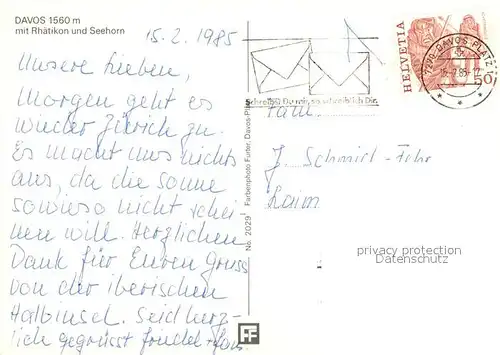 DAVOS 1560 m
mit Rhätikon und Seehorn
15.2.1985
Unsere Lieben,
Morgen geht es
wieder Zürich zu.
Es macht uns nichts
aus, da die Sonne
sowieso nicht schei
nen will. Herzlichen
Dank für Euren Gruss
von der iberischen
Halbinsel. Seid herz-
lich gegrüsst
No. 2029 Farbenphoto Furter, Davos-Platz
Schreibst Du mir, so schreib ich Dir.
HELVETIA
50
7270 DAVOS PLATZ 1
Fam.
J. Schmid-
privacy protection
Datenschutz
FF